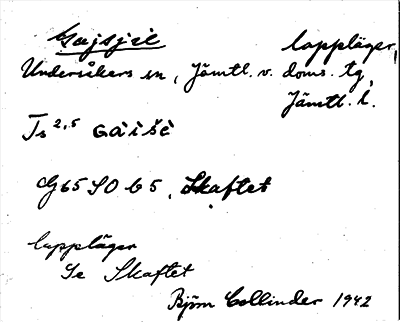 Gajsjie lappläger,
Undersåkers sn, Jämtl. v. doms. tg,
Jämtl. l.
Ts 2,5 GÀÌŠÈ
G65 SO b 5, Skaftet
lappläger
Se Skaftet
Björn Collinder 1942